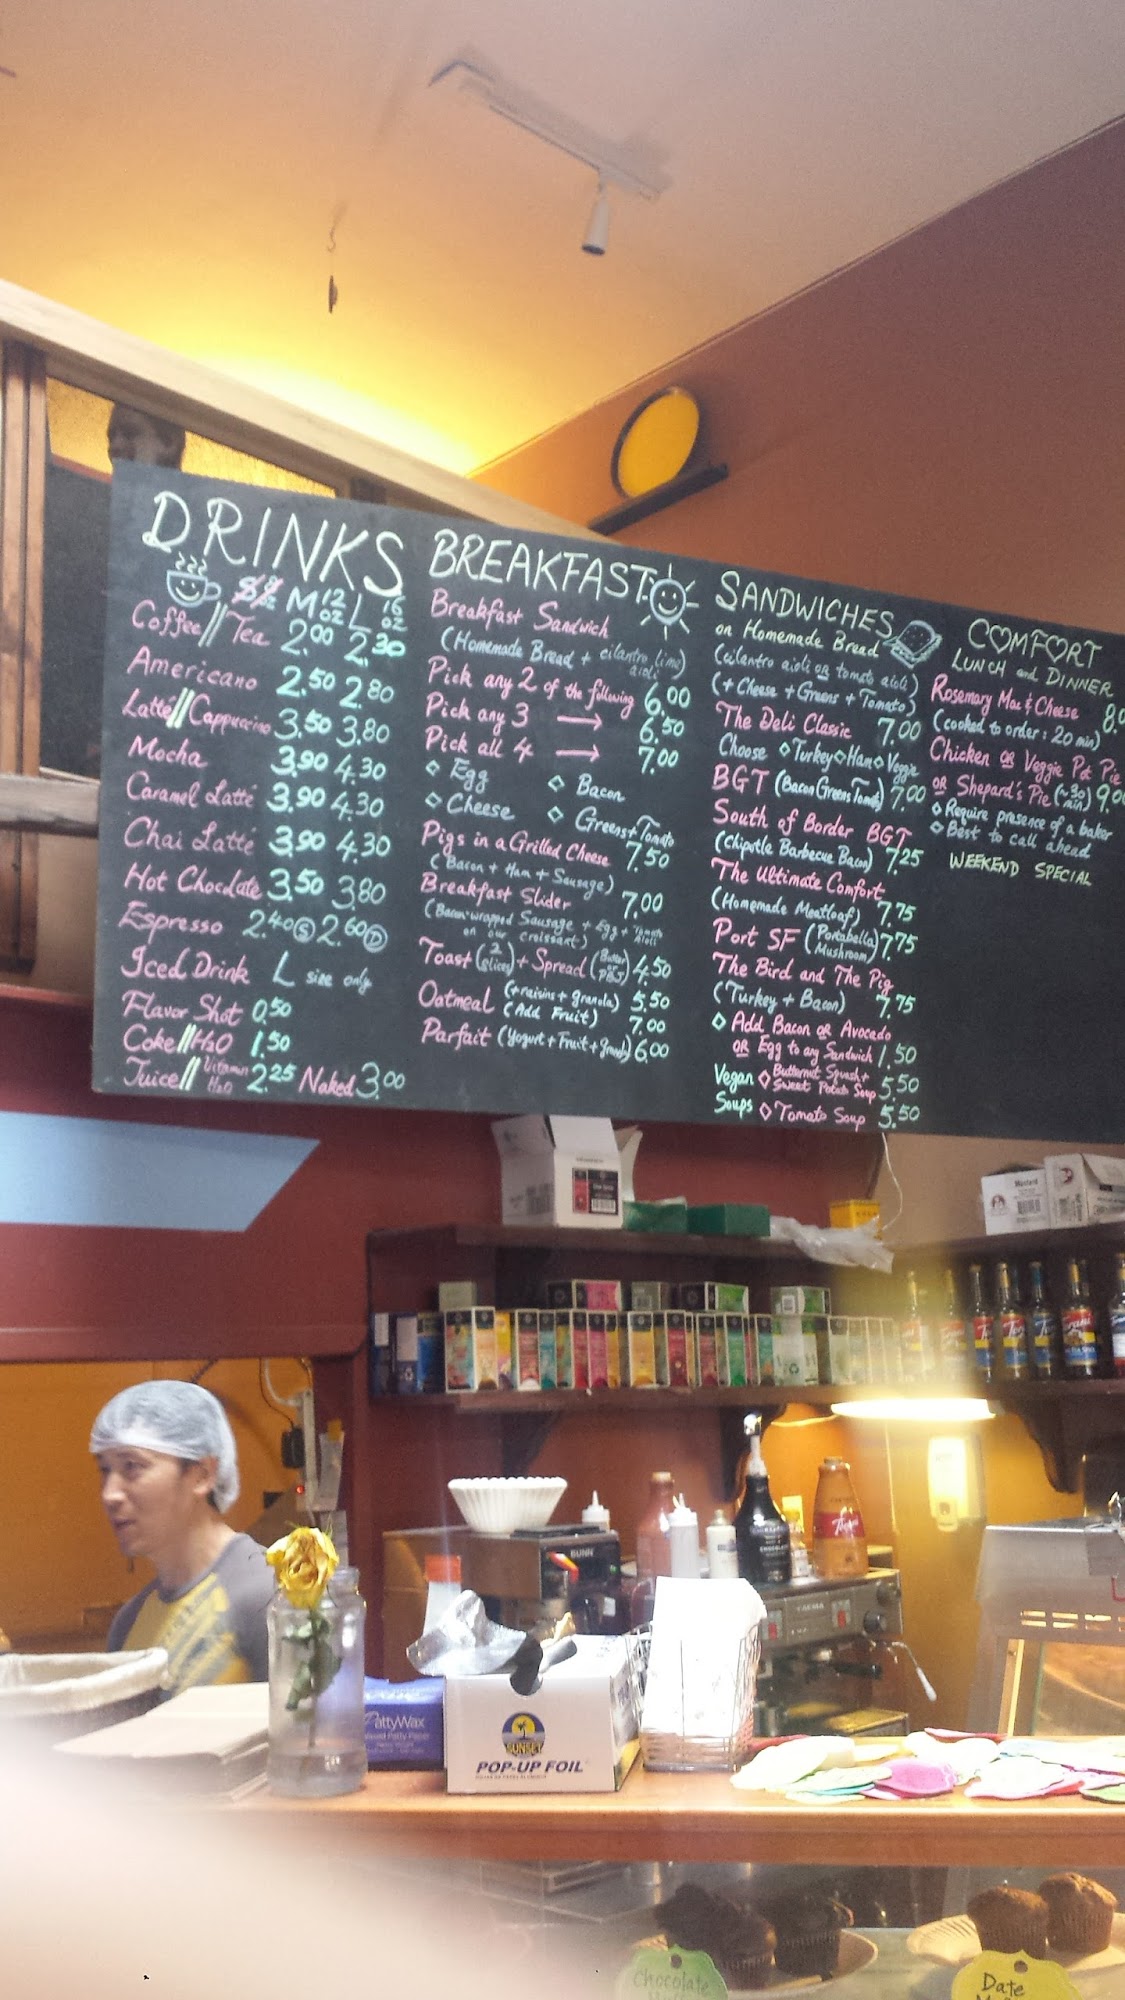 DRINKS
M 12 oz L 16 oz
Coffee // Tea 2.00 2.30
Americano 2.50 2.80
Latté // Cappuccino 3.50 3.80
Mocha 3.90 4.30
Caramel Latté 3.90 4.30
Chai Latté 3.90 4.30
Hot Chocolate 3.50 3.80
Espresso 2.40 (S) 2.60 (D)
Iced Drink L size only
Flavor Shot 0.50
Coke // H2O 1.50
Juice // Vitamin H2O 2.25 Naked 3.00
BREAKFAST
Breakfast Sandwich
(Homemade Bread + cilantro lime aioli)
Pick any 2 of the following 6.00
Pick any 3 → 6.50
Pick all 4 → 7.00
◇ Egg ◇ Bacon
◇ Cheese ◇ Greens + Tomato
Pigs in a Grilled Cheese 7.50
(Bacon + Ham + Sausage)
Breakfast Slider 7.00
(Bacon-wrapped Sausage + Egg + Tomato Aioli
on our croissant)
Toast (2 slices) + Spread (Butter or PB&J) 4.50
Oatmeal (+ raisins + granola) 5.50
(Add Fruit) 7.00
Parfait (Yogurt + Fruit + Granola) 6.00
SANDWICHES
on Homemade Bread
(cilantro aioli or tomato aioli)
(+ Cheese + Greens + Tomato)
The Deli Classic 7.00
Choose ◇ Turkey ◇ Ham ◇ Veggie
BGT (Bacon Greens Tomato) 7.00
South of Border BGT
(Chipotle Barbecue Bacon) 7.25
The Ultimate Comfort
(Homemade Meatloaf) 7.75
Port SF (Portabella Mushroom) 7.75
The Bird and The Pig
(Turkey + Bacon) 7.75
◇ Add Bacon or Avocado
or Egg to any Sandwich 1.50
Vegan Soups ◇ Butternut Squash + Sweet Potato Soup 5.50
◇ Tomato Soup 5.50
COMFORT
LUNCH and DINNER
Rosemary Mac & Cheese
(cooked to order: 20 min)
Chicken or Veggie Pot Pie
or Shepard's Pie (~30 min) 9.00
◇ Require presence of a baker
◇ Best to call ahead
WEEKEND SPECIAL
Mustard
Torani
BUNN
PattyWax
SUNSET
POP-UP FOIL
Chocolate
Date